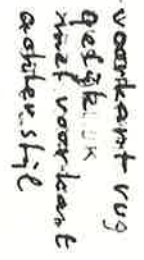 voorkant rug
gelijk
met voorkant
achter stijl